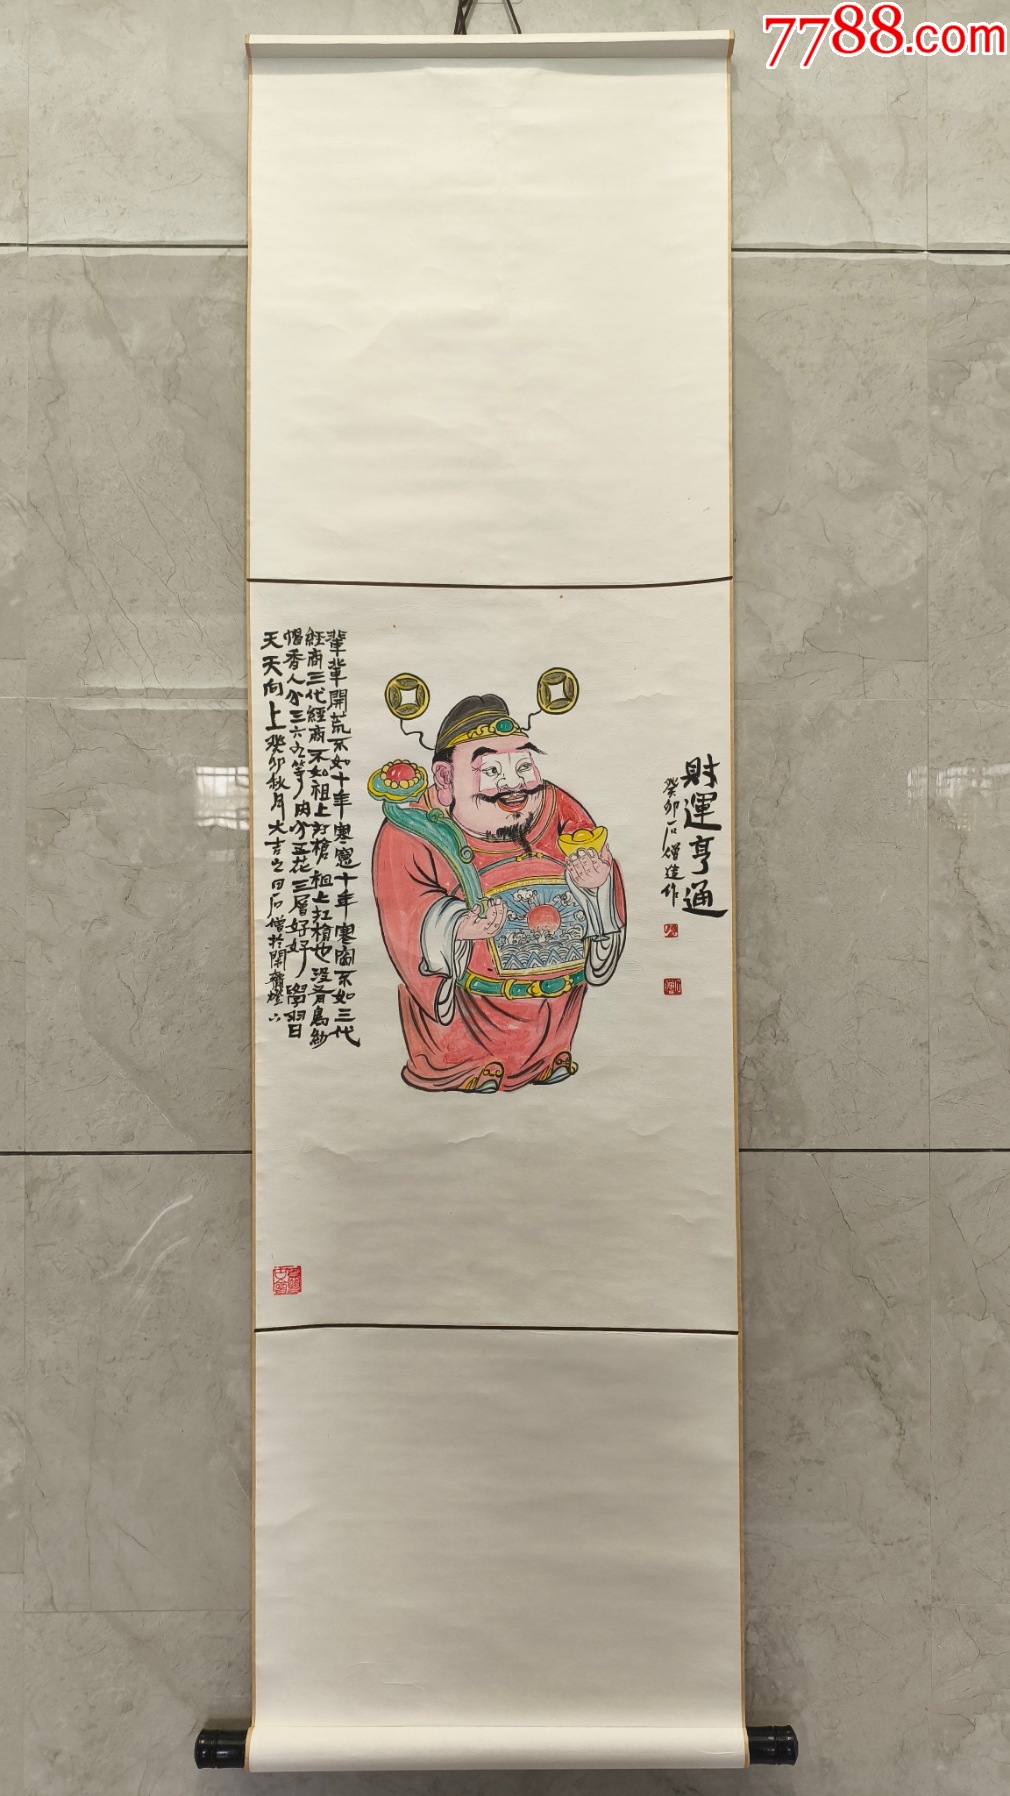 7788.com
財運亨通
癸卯石僧造作
輩輩開荒不如十年寒窓十年寒窗不如三代
經商三代經商不如祖上扛槍祖上扛槍也没有烏紗
帽香人分三六九等肉分五花三層好好學習日
天天向上癸卯秋月大吉之日石僧於開齋燈下